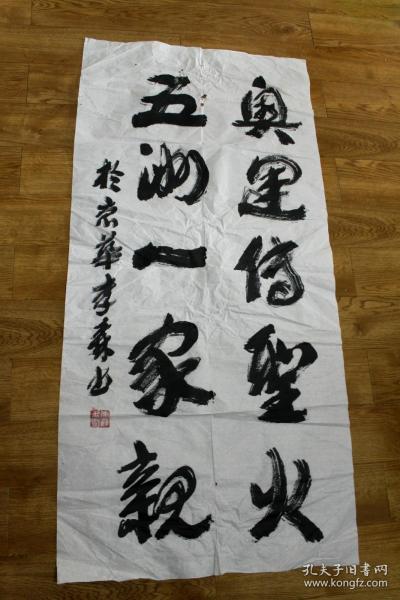 奥運傳聖火
五洲一家親
於京華李森书
孔夫子旧书网
www.kongfz.com